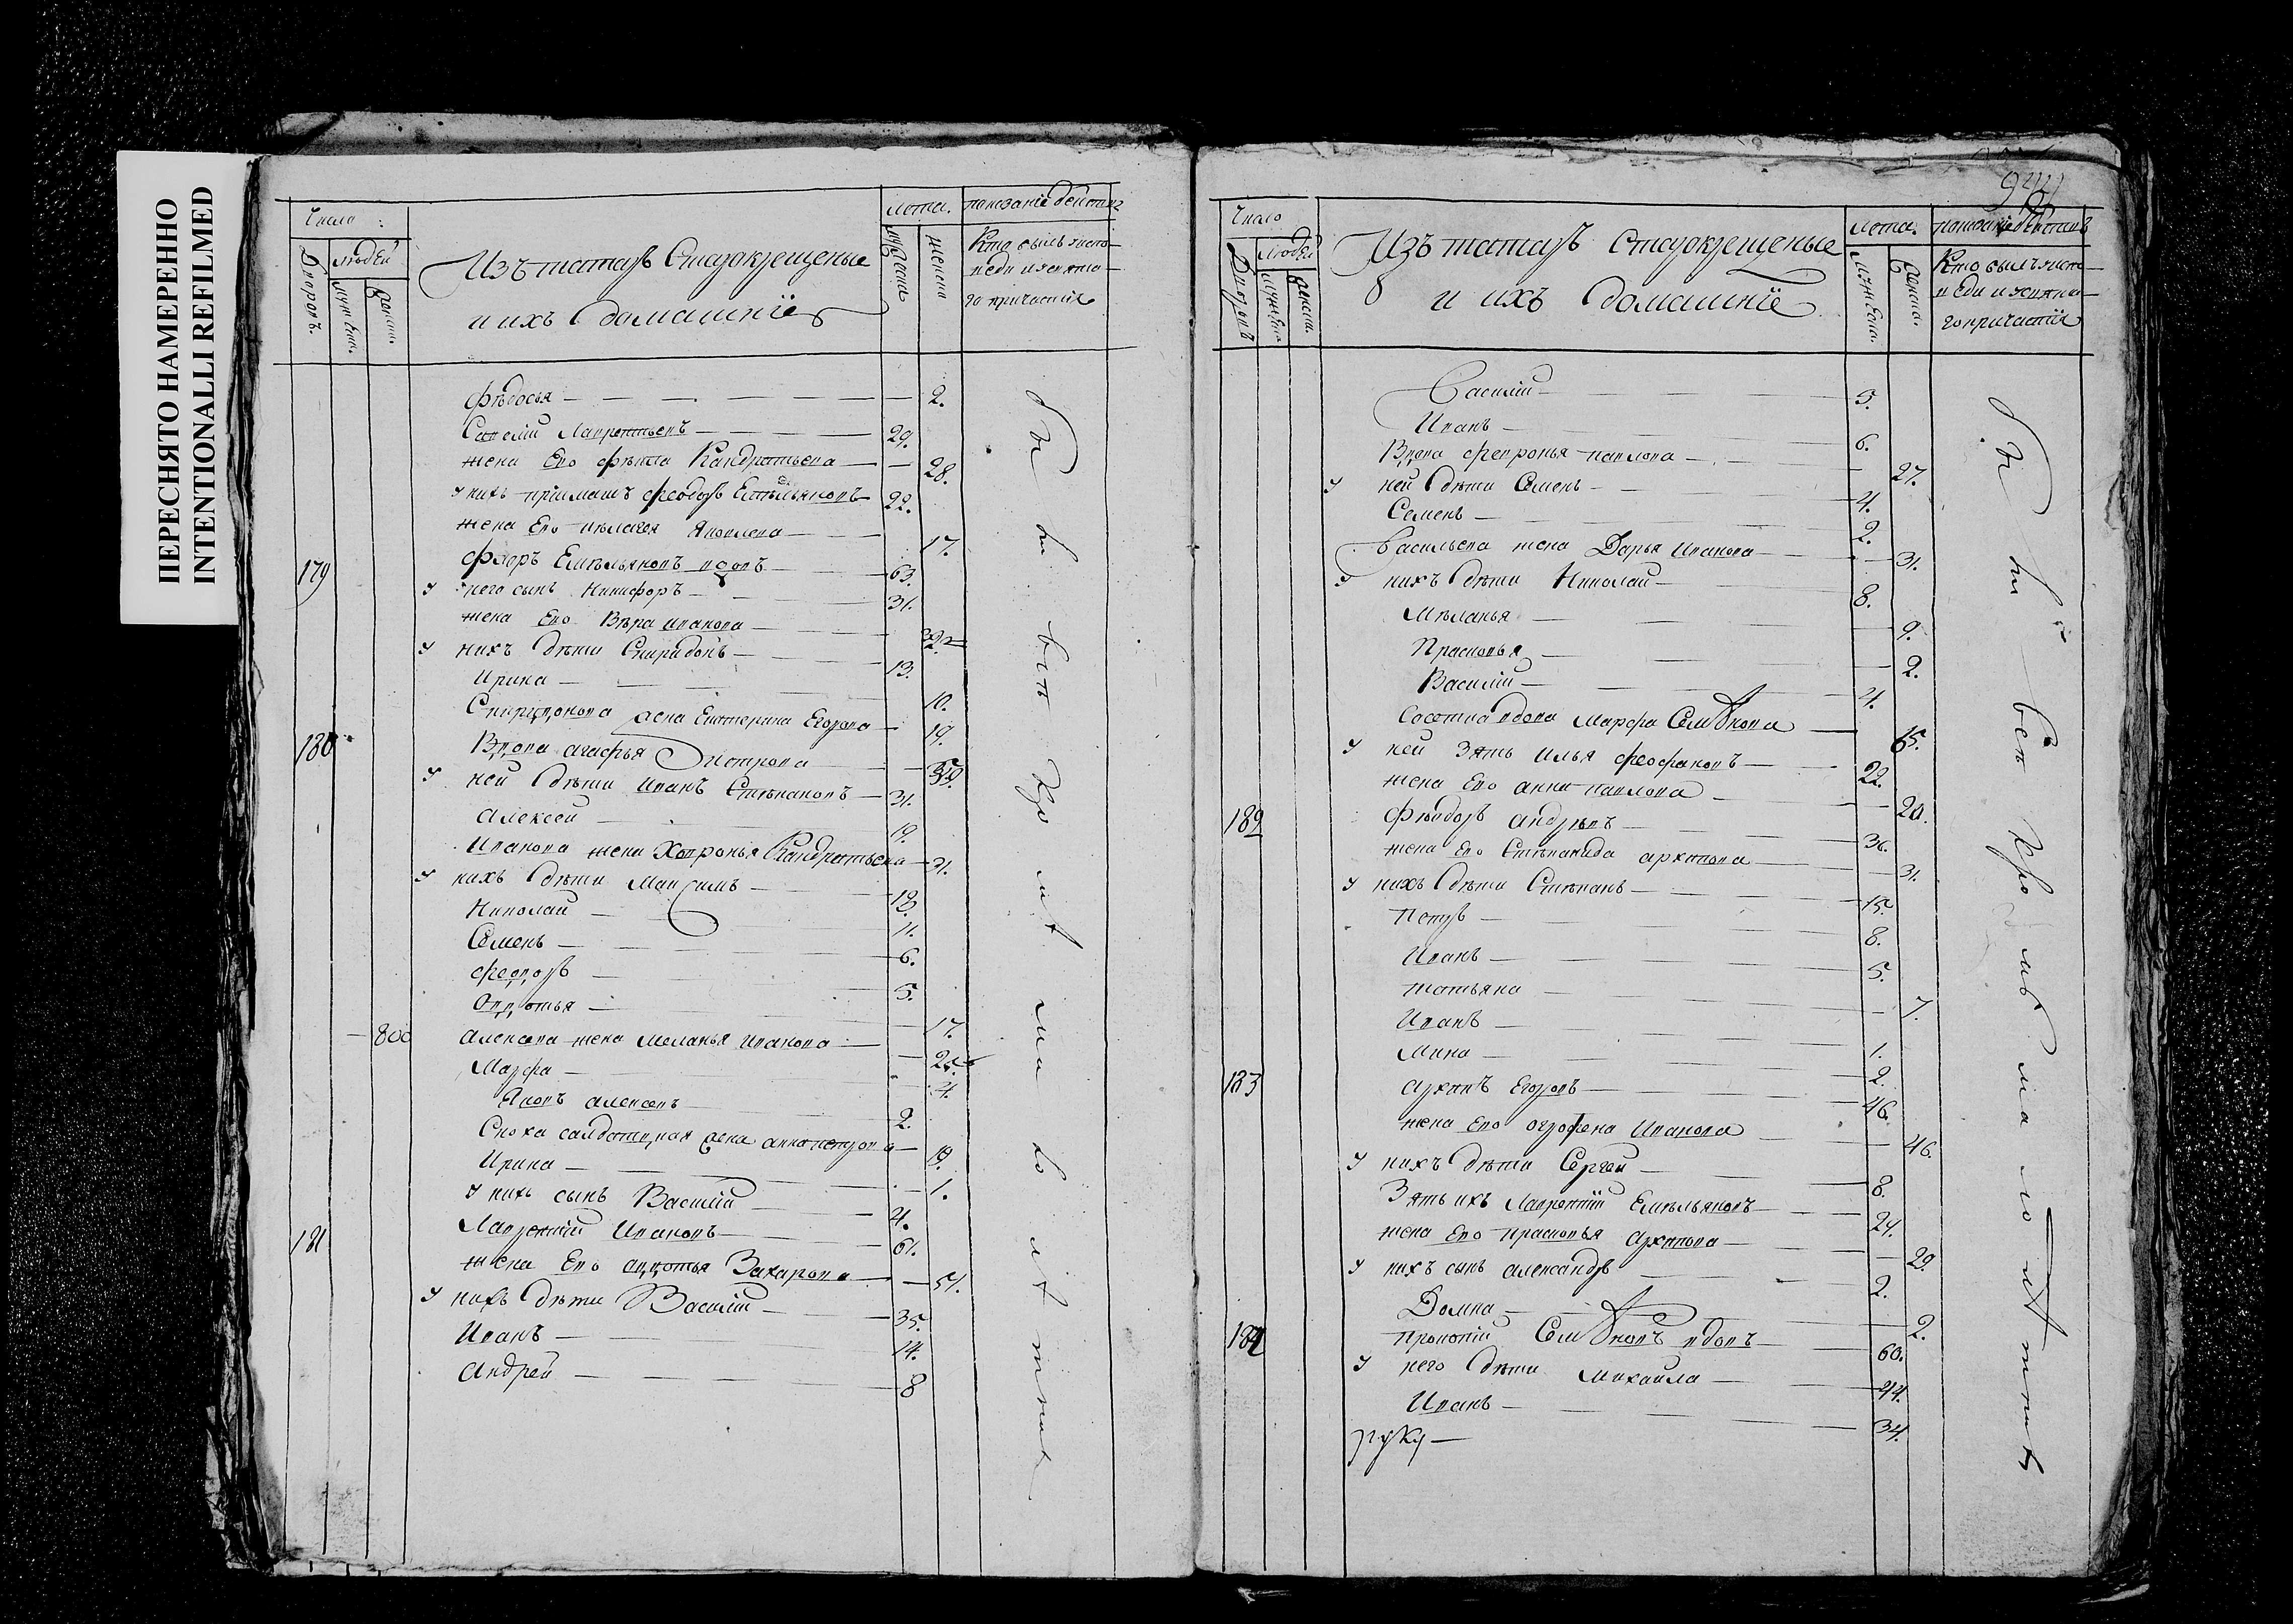 ПЕРЕСНЯТО НАМЕРЕННО
INTENTIONALLI REFILMED
Число
людей
Дворовъ.
Изъ татаръ Старокрещеные
и ихъ домашніе
лета.
мужеска
женска
Кто былъ у испо-
веди и у свята-
го причастія
Фѣдосья — 2.
Савелій Лаврентьевъ — 29.
жена Его Фѣкла Кандратьева — 28.
у нихъ Феодоръ Емѣльяновъ 22.
жена Его пѣлагея Яковлева — 17.
179 Флоръ Емѣльяновъ вдовъ — 63.
у него сынъ Никифоръ — 31.
жена Его Вѣра иванова — 32
у нихъ дѣти Спиридонъ — 13.
Ирина — 10.
Спиридонова жена Екатерина Егорова — 19.
180 Вдова агафья Дмитрова
у ней дѣти Иванъ Стѣпановъ — 31.
Алексей — 19.
Иванова жена Кандратьева — 31.
у нихъ дѣти Максимъ — 12.
Николай — 11.
Семенъ — 6.
феодоръ — 5.
Овдотья — 17.
800 Алексева жена Меланья иванова —
Марфа — 4.
Яковъ алексевъ 2.
Сноха салдатская жена анна петрова — 19.
Ирина — 1.
у нихъ сынъ Василій — 4.
181 Лаврентій Ивановъ — 61.
жена Его авдотья Захарова — 51.
у нихъ дѣти Василій — 35.
Иванъ — 14.
Андрей — 8
Были вси кромѣ малолѣтнихъ
944
Число
людей
Дворовъ
Изъ татаръ Старокрещеные
и ихъ домашніе
лета.
мужеска.
женска.
Кто былъ у испо-
веди и у свята-
го причастія
Василій — 5.
Иванъ — 6.
Вдова февронья павлова — 27.
у ней дѣти Семенъ — 4.
Семенъ — 2.
Васильева жена Дарья Иванова — 31.
у нихъ дѣти Николай — 8.
Мѣланья — 9.
Прасковья — 2.
Василій — 4.
вдова Марфа Семѣнова — 65.
у ней Зять Илья феофановъ — 22.
жена Его анна павлова — 20.
182 Фѣодоръ андрѣевъ — 36.
жена Его Стѣпанида архипова — 31.
у нихъ дѣти Стѣпанъ — 15.
Петръ — 8.
Иванъ — 5.
татьяна — 7.
Иванъ — 1.
Мина — 2.
183 Архипъ Егоровъ — 46.
жена Его огрофена Иванова — 46.
у нихъ дѣти Сергей — 8.
Зять ихъ Лаврентій Емѣльяновъ — 24.
жена Его прасковья Архипова — 29.
у нихъ сынъ александръ — 2.
Домна — 2.
184 Прокопій Семѣновъ вдовъ — 60.
у него дѣти Михаила — 44.
Иванъ — 34.
руку —
Были вси кромѣ малолѣтнихъ